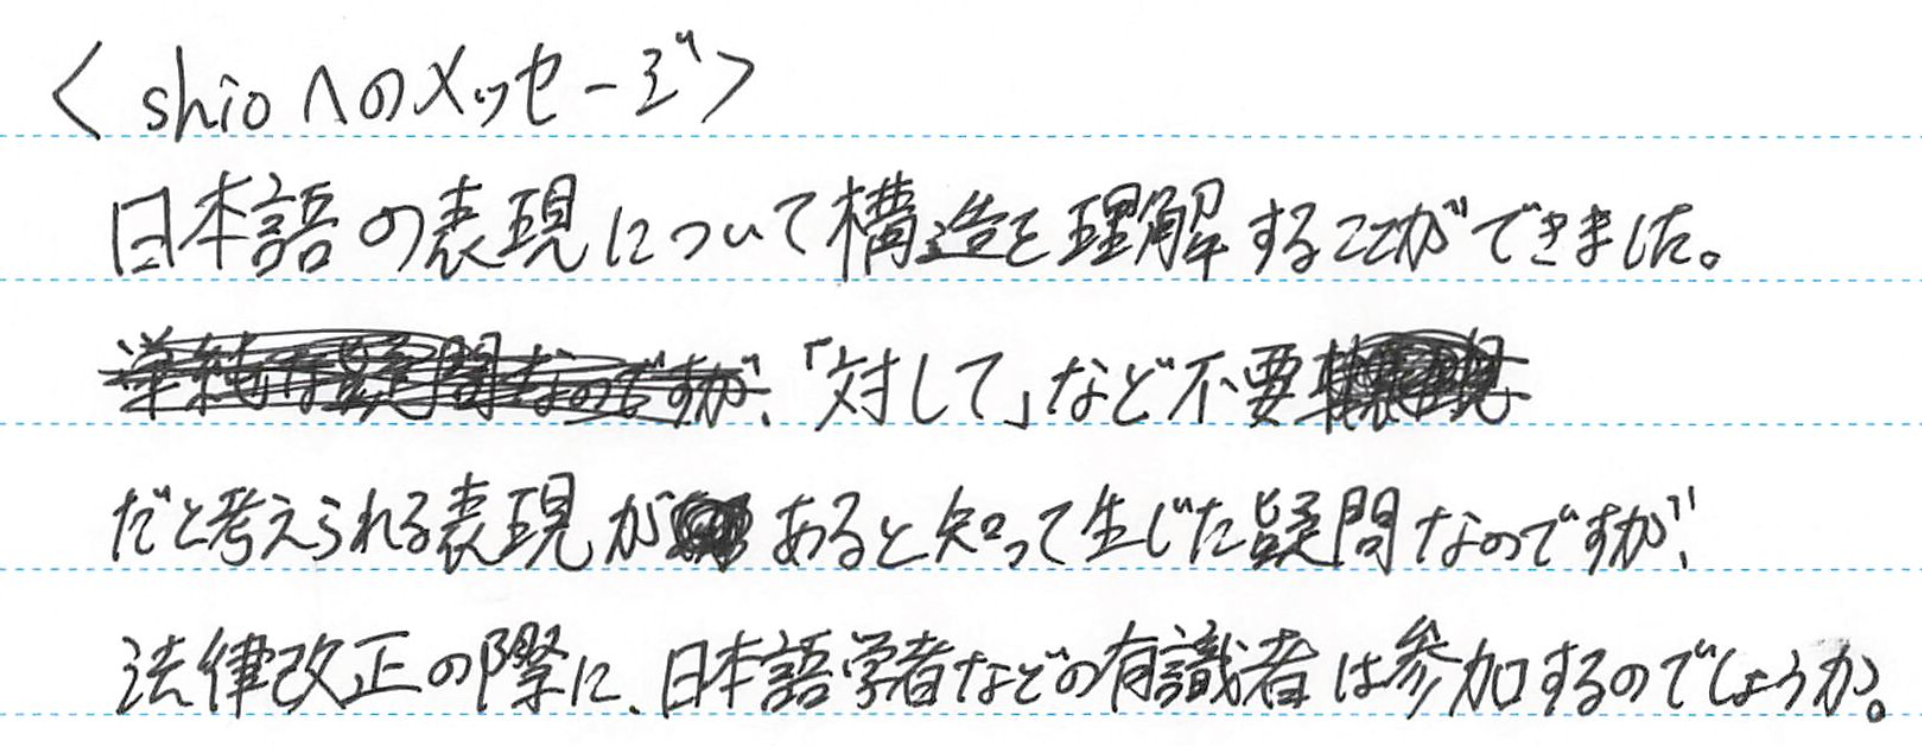 <shioへのメッセージ>
日本語の表現について構造を理解することができました。
「対して」など不要
だと考えられる表現があると知って生じた疑問なのですが、
法律改正の際に、日本語学者などの有識者は参加するのでしょうか。